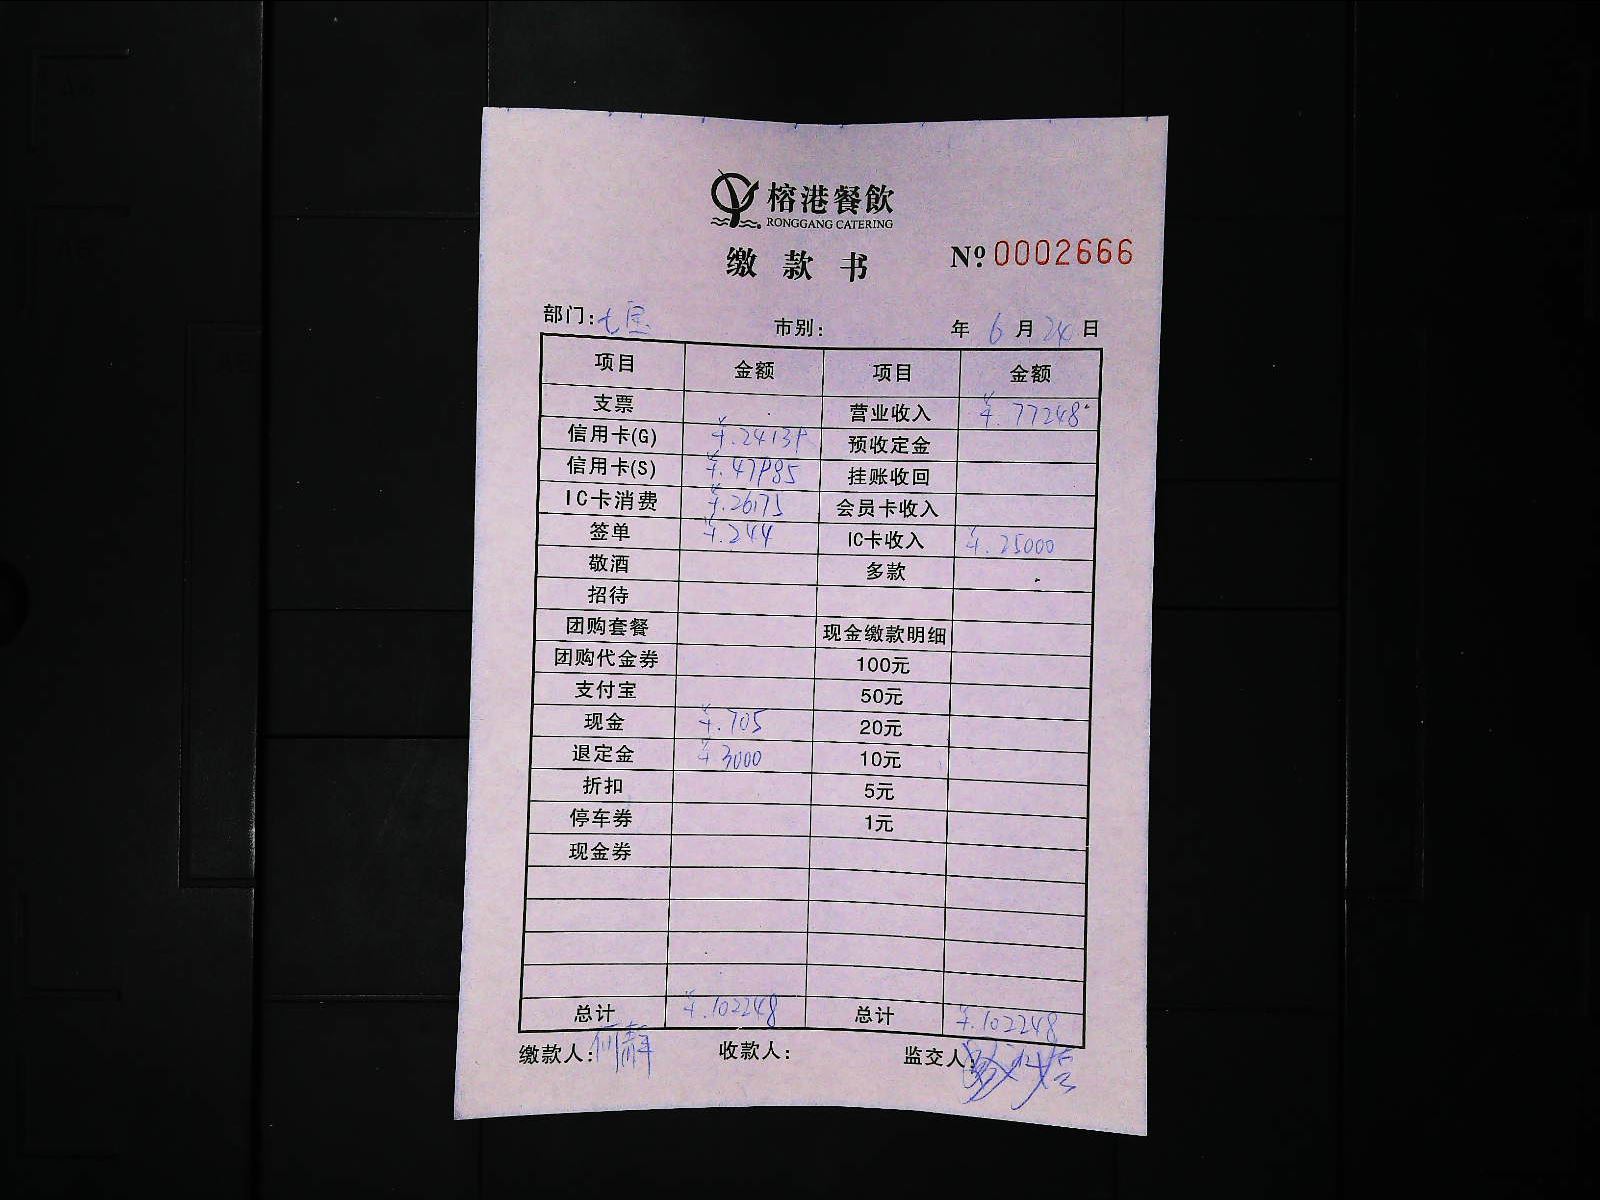 榕港餐飲
RONGGANG CATERING
缴款书 Nº 0002666
部门:七宝 市别: 年 6 月 24 日
项目 金额 项目 金额
支票 营业收入 ¥.77248
信用卡(G) ¥.24139 预收定金
信用卡(S) ¥.47985 挂账收回
IC卡消费 ¥.26175 会员卡收入
签单 ¥.244 IC卡收入 ¥.25000
敬酒 多款
招待
团购套餐 现金缴款明细
团购代金券 100元
支付宝 50元
现金 ¥.705 20元
退定金 ¥3000 10元
折扣 5元
停车券 1元
现金券
总计 ¥.102248 总计 ¥.102248
缴款人:何静 收款人: 监交人: